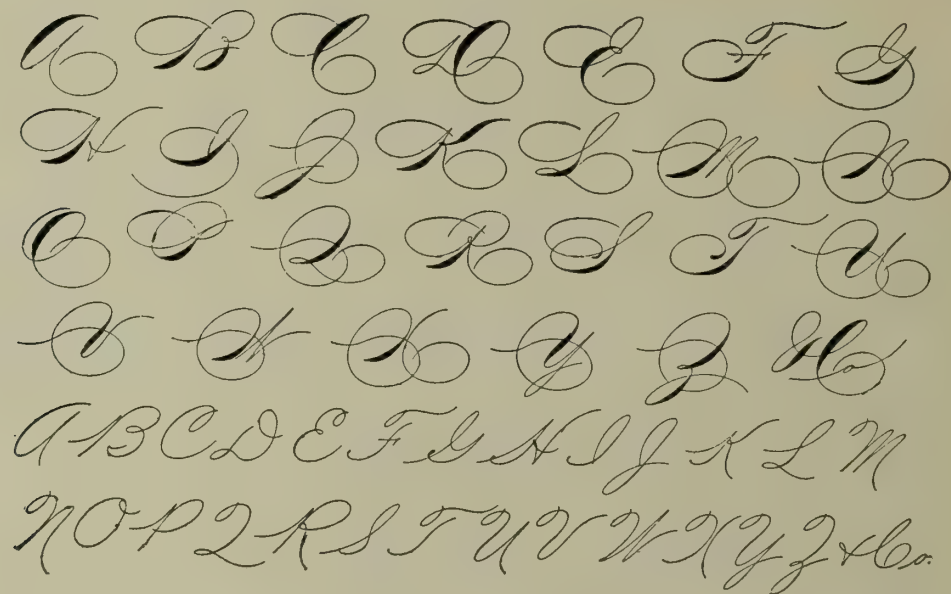 A B C D E F G
H I J K L M N
O P Q R S T U
V W X Y Z & Co
A B C D E F G H I J K L M
N O P Q R S T U V W X Y Z & Co.